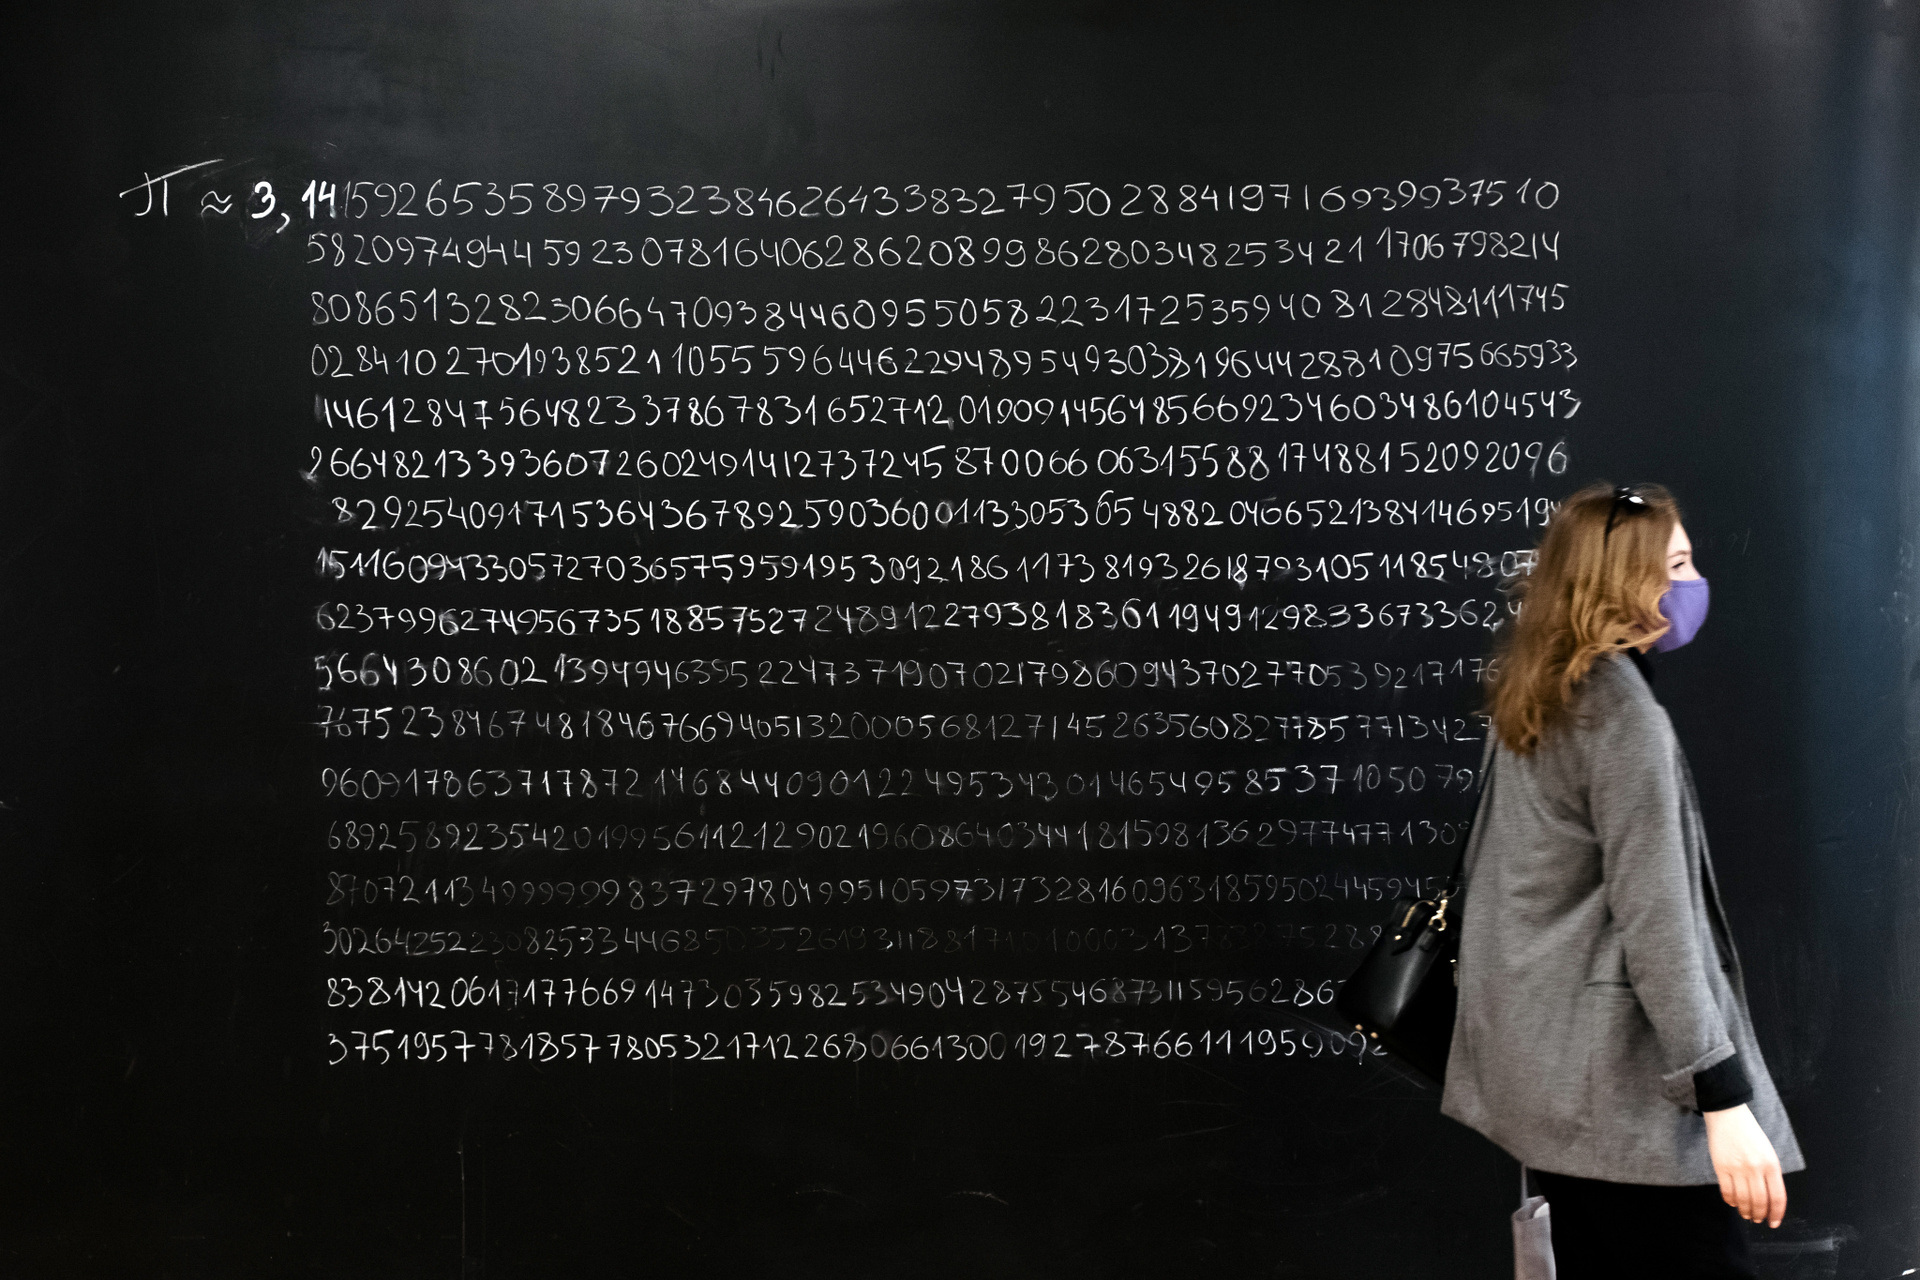 π ≈ 3,14159265358979323846264338327950288419716939937510
58209749445923078164062862089986280348253421 1706798214
808651328230664709384460955058223172535940812848111745
0284102701938521105559644622948954930381964428810975665933
1461284756482337867831652712019091456485669234603486104543
2664821339360726024914127372458700660631558817488152092096
82925409171536436789259036001133053054882046652138414695194
151160943305727036575959195309218611738193261879310511854807
623799627495673518857527248912279381830119491298336733624
56643086021394946395224737190702179860943702770539217176
767523846748184676694051320005681271452635608277857713427
960917863717872146844090122495343014654958537105079
689258923542019956112129021960864034418159813629774771309
870721134999999837297804995105973173281609631859502445945
30264252230825334468503526193118817101000313783875288
838142061717766914730359825349042875546873115956286
37519577818577805321712268066130019278766111959092